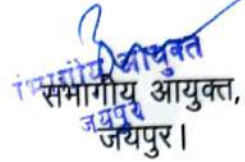 संभागीय आयुक्त
जयपुर
संभागीय आयुक्त,
जयपुर।